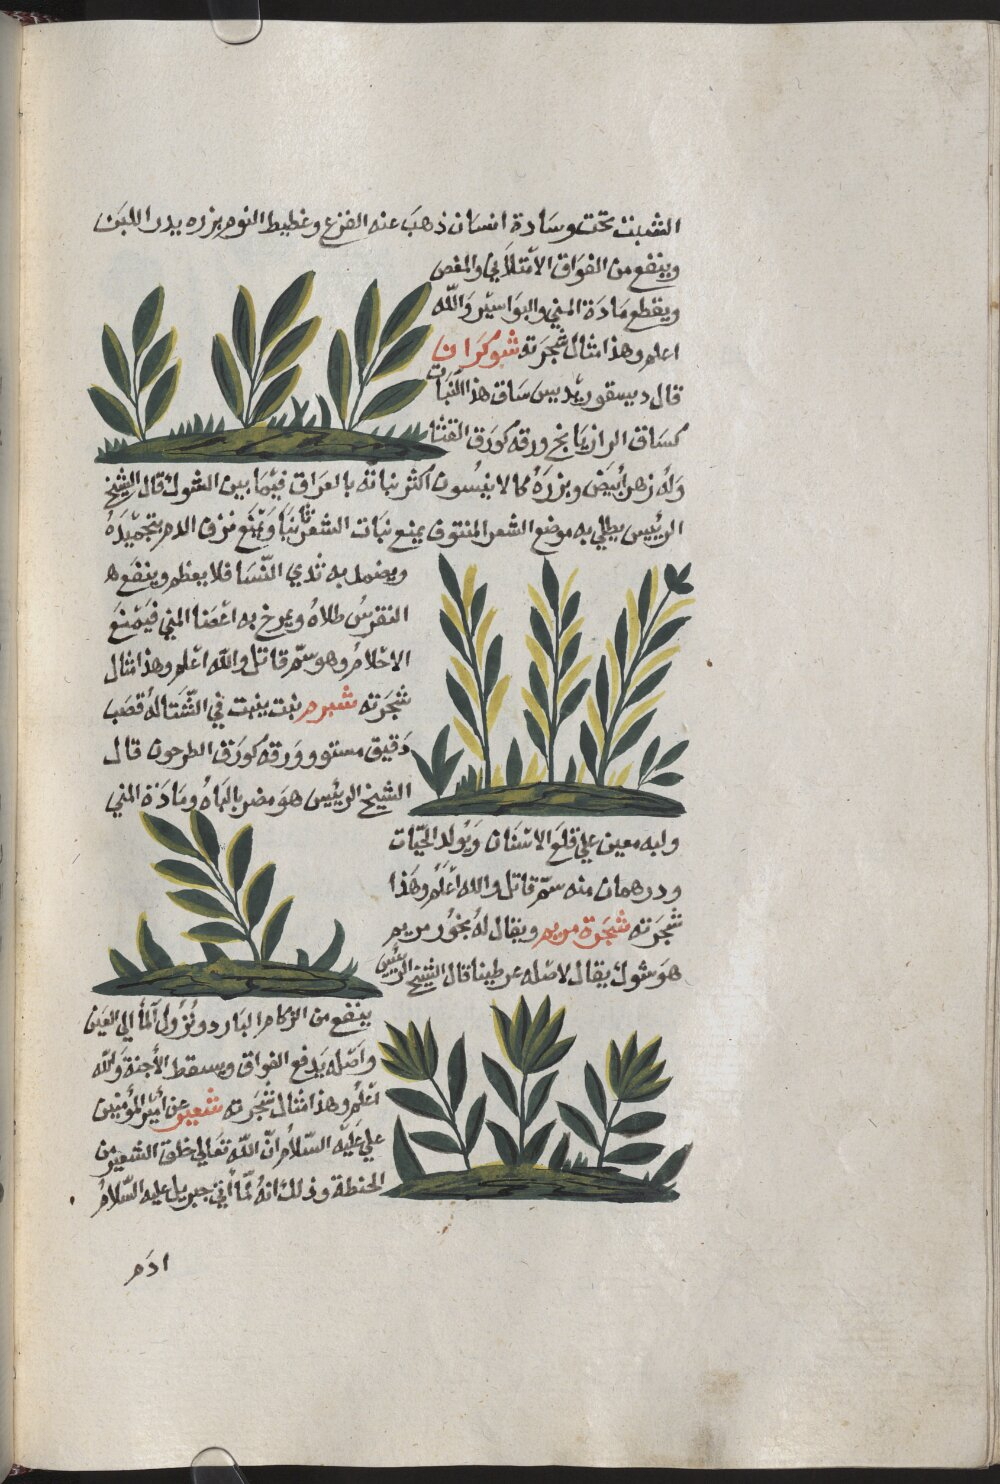 الشبنت تحت وسادة انسان ذهب عنه الفزع وغطيط النوم بزره يدر اللبن
وينفع من الفواق الامتلائي والمغص
ويقطع مادة المني والبواسير والله
اعلم وهذا مثال شجرته شوكران
قال ديسقوريديس ساق هذا النبات
كساق الرازيانج ورقه كورق القثا
وله زهر أبيض وبزره كالانيسون اكثر نباته بالعراق فيما بين الشوك قال الشيخ
الرئيس يطلي به موضع الشعر المنتوف يمنع نبات الشعر ثانيا ويمنع نزف الدم بتجميده
ويضمد به ثدي النسا فلا يعظم وينفع
النقرس طلاه ويمرخ به اعضا المني فيمنع
الاحلام وهو سم قاتل والله اعلم وهذا مثال
شجرته شبرم نبت ينبت في الشتا له قصب
دقيق مستو وورقه كورق الطرحون قال
الشيخ الرئيس هو مضر بالباه ومادة المني
ولبه معين علي قلع الاسنان ويولد الحيات
ودرهمان منه سم قاتل والله أعلم وهذا
شجرته شجرة مريم ويقال له بخور مريم
هو شوك يقال لاصله عرطينا قال الشيخ الرئيس
ينفع من الزكام البارد ونزول آلمأ الي العين
واصله يدفع الفواق ويسقط الأجنة والله
اعلم وهذا مثال شجرته شعير عن أمير المؤمنين
علي عليه السلام ان الله تعالي خلق الشعير من
الحنطة وذلك انه لما أتي جبريل عليه السلام
ادم